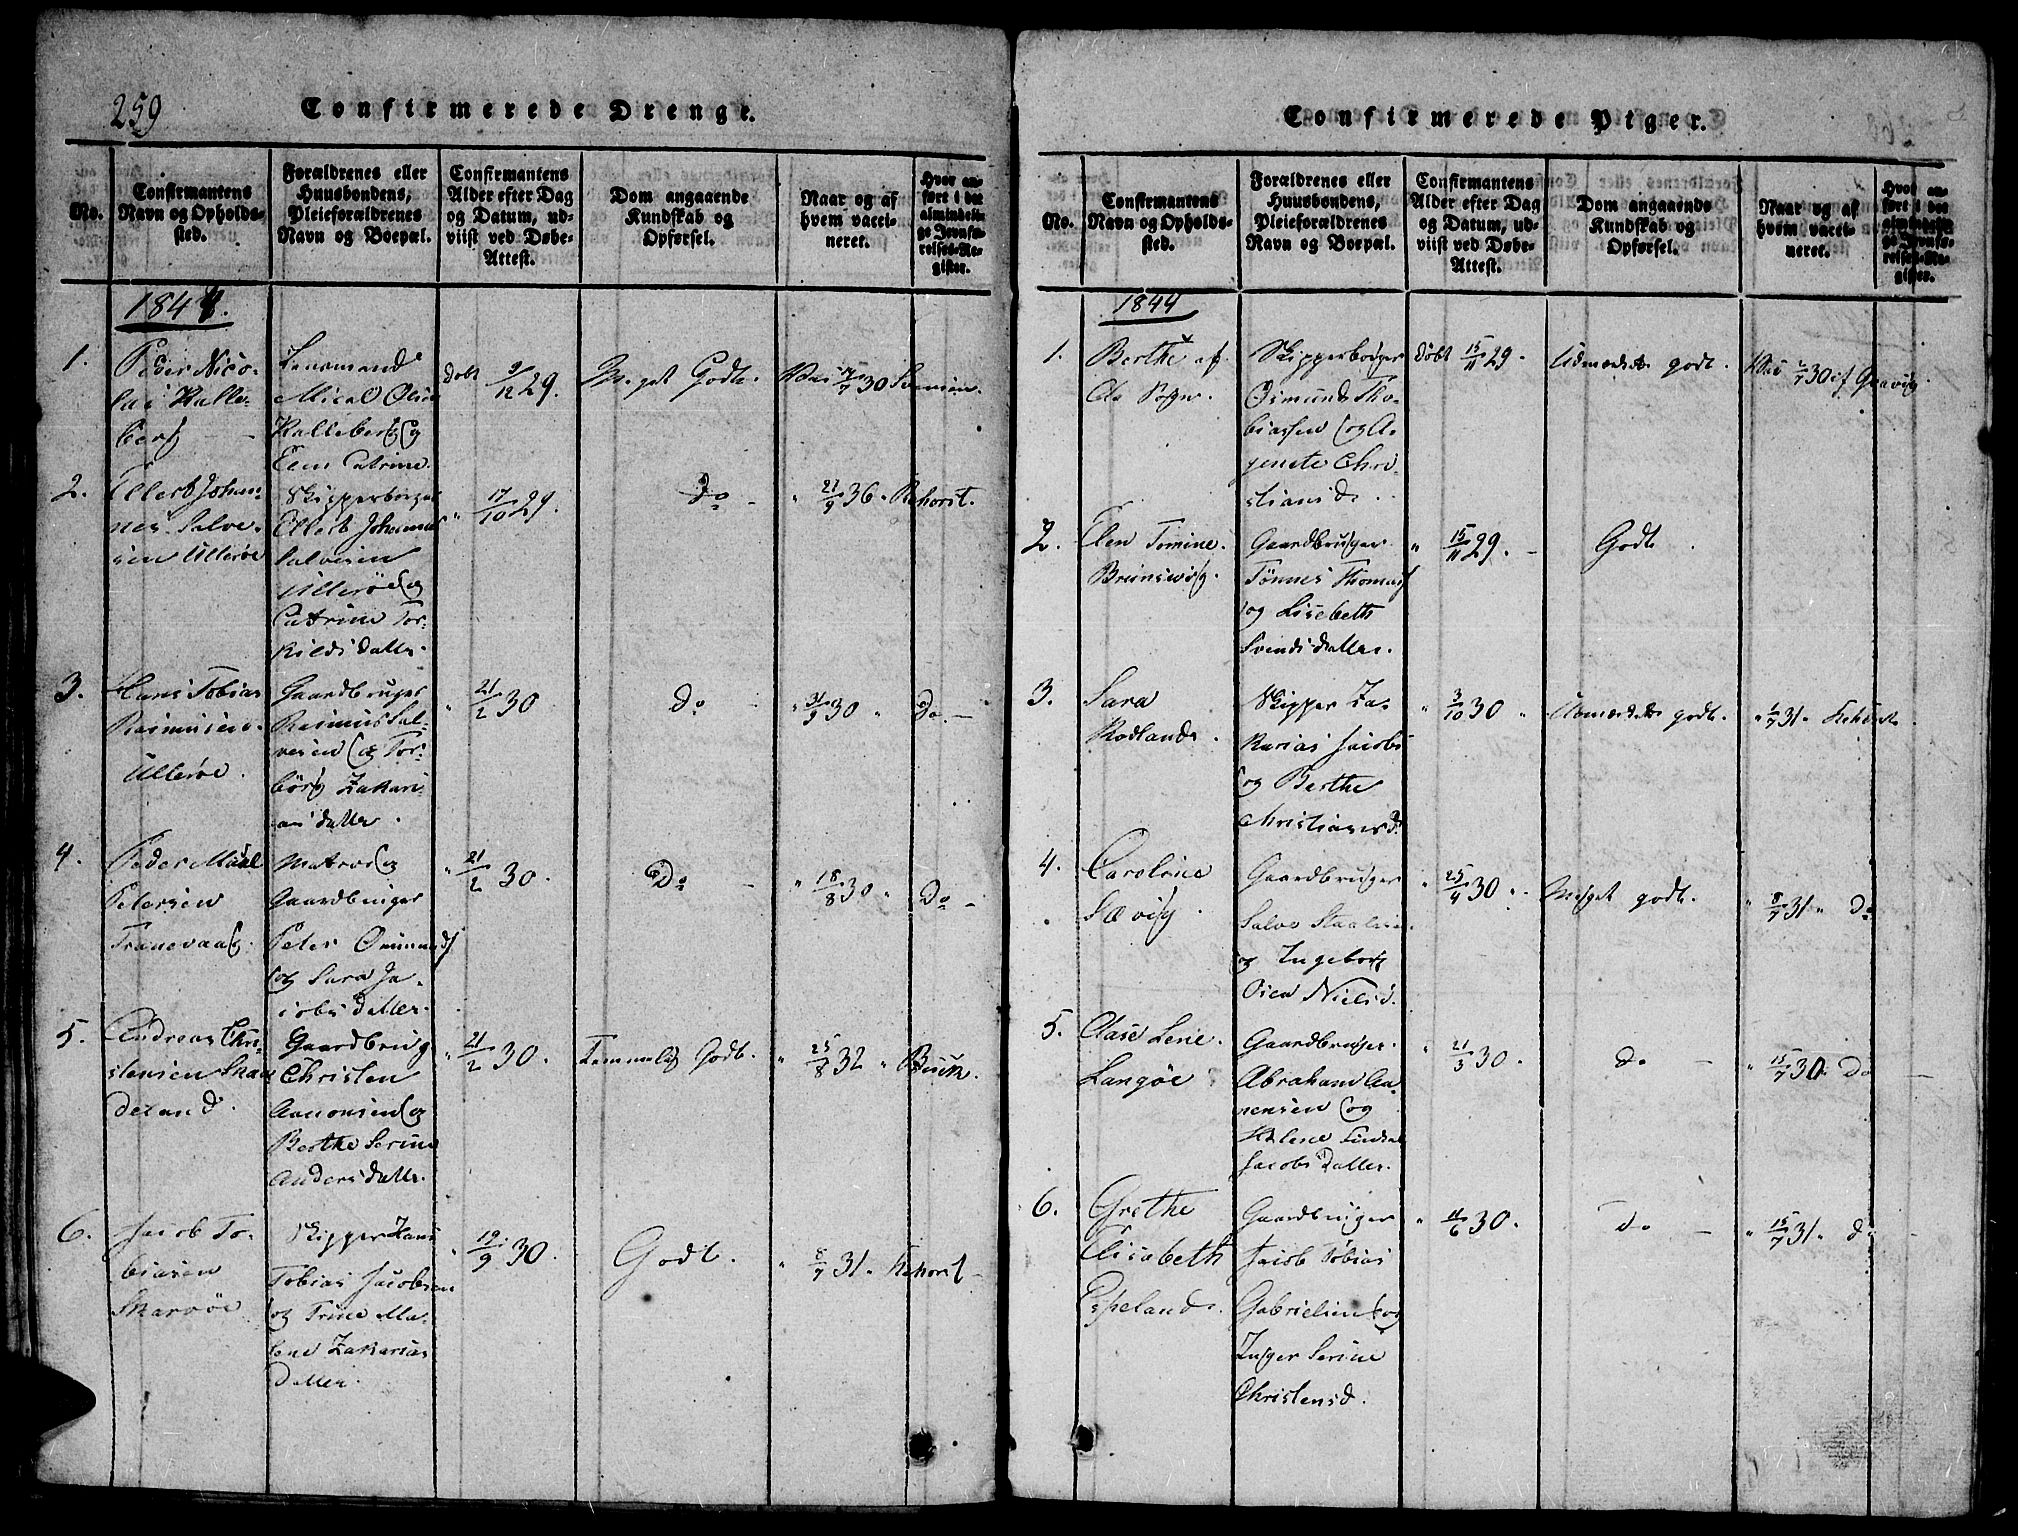 259
Confirmerede Drenge.
No.
Confirmantens
Navn og Opholds-
sted.
Forældrenes eller
Huusbondens,
Pleieforældrenes
Navn og Boepæl.
Confirmantens
Alder efter Dag
og Datum, ud-
viist ved Døbe-
Attest.
Dom angaaende
Kundskab og
Opførsel.
Naar og af
hvem vacci-
neret.
Hvor an-
ført i det
almindeli-
ge Jevnfø-
relses-Re-
gister.
1844.
1.
Peder Nico-
lai Halle-
berg
Lensmand
Mical Olsen
Halleberg og
Elen Catrine
Døbt 9/12 29.
Meget Godt.
2.
Ellert Johan-
nes Salve-
sen Ullerøe
Skipperborger
Ellert Johannes
Salvesen
Ullerøe og
Catrine Tor-
kildsdatter.
" 17/10 29.
Do
" 21/9 36. Rehorst.
3.
Hans Tobias
Rasmusen
Ullerøe.
Gaardbruger
Rasmus Sal-
vesen og Tor-
børg Zakari-
asdatter.
" 21/2 30
Do
" 31/9 30 " Do.
4.
Peder
Petersen
Tranevaag.
Matros og
Gaardbruger
Peter
og Sara Ja-
cobsdatter.
" 21/2 30.
Do
" 18/8 30 " Do
5.
Andreas Chri-
stensen Skaa
deland.
Gaardbrug
Christen
Aanonsen og
Berthe Serine
Andersdatter.
" 21/2 30.
Temmelig Godt.
" 25/8 32 "
6.
Jacob To-
biasen
Skarvøe
Skipper Hans
Tobias Jacobsen
og Trine Ma-
lene Zakarias
datter.
" 19/9 30.
Godt.
" 8/7 31. Rehorst
Confirmerede Piger.
No.
Confirmantens
Navn og Opholds-
sted.
Forældrenes eller
Huusbondens,
Pleieforældrenes
Navn og Boepæl.
Confirmantens
Alder efter Dag
og Datum, ud-
viist ved Døbe-
Attest.
Dom angaaende
Kundskab og
Opførsel.
Naar og af
hvem vacci-
neret.
Hvor an-
ført i det
almindeli-
ge Jevnfø-
relses-Re-
gister.
1844
1.
Berthe
Skipperborger
Osmund Tho-
biassen og A-
genete Chri-
stiansd.
Døbt 15/11 29.
Udmærket godt.
2.
Elen Tomine
Brunsvig.
Gaardbruger
Tønnes Thomas
og Lisebeth
Svendsdatter.
" 15/11 29.
Godt
3.
Sara
Rodland.
Skipper Za-
karias Jacobs
og Berthe
Christiansd.
" 3/10 30
Udmærket godt.
4.
Caroline
Sævig.
Gaardbruger
Salve
og Ingeborg
Nielsd.
" 25/4 30.
Meget godt.
" 8/7 31 " Do
5.
Aase Lene
Langøe
Gaardbruger
Abraham Aa-
nensen og
Helene
Jacobsdatter.
" 21/3 30.
Do
" 15/7 30. Do
6.
Grethe
Elisabeth
Espeland.
Gaardbruger
Jacob Tobias
Gabrielsen og
Inger Serine
Christensd.
" 11/6 30.
Do
" 15/7 31. Do